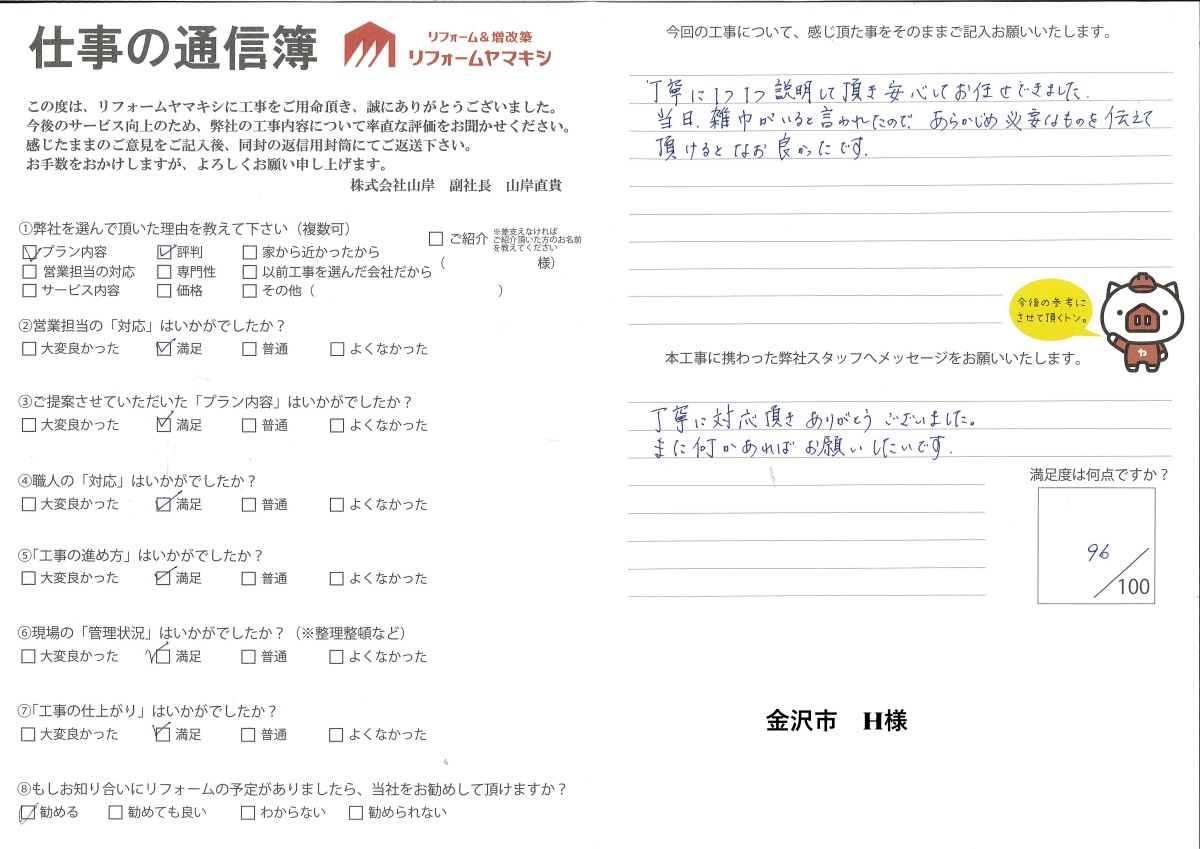 仕事の通信簿
リフォーム&増改築
リフォームヤマキシ
この度は、リフォームヤマキシに工事をご用命頂き、誠にありがとうございました。
今後のサービス向上のため、弊社の工事内容について率直な評価をお聞かせください。
感じたままのご意見をご記入後、同封の返信用封筒にてご返送下さい。
お手数をおかけしますが、よろしくお願い申し上げます。
株式会社山岸 副社長 山岸直貴
①弊社を選んで頂いた理由を教えて下さい（複数可）
☑プラン内容 ☑評判 □家から近かったから □ご紹介 ※差支えなければ
ご紹介頂いた方のお名前
を教えてください
□営業担当の対応 □専門性 □以前工事を選んだ会社だから （ 様）
□サービス内容 □価格 □その他（ ）
②営業担当の「対応」はいかがでしたか？
□大変良かった ☑満足 □普通 □よくなかった
③ご提案させていただいた「プラン内容」はいかがでしたか？
□大変良かった ☑満足 □普通 □よくなかった
④職人の「対応」はいかがでしたか？
□大変良かった ☑満足 □普通 □よくなかった
⑤「工事の進め方」はいかがでしたか？
□大変良かった ☑満足 □普通 □よくなかった
⑥現場の「管理状況」はいかがでしたか？（※整理整頓など）
□大変良かった ☑満足 □普通 □よくなかった
⑦「工事の仕上がり」はいかがでしたか？
□大変良かった ☑満足 □普通 □よくなかった
⑧もしお知り合いにリフォームの予定がありましたら、当社をお勧めして頂けますか？
☑勧める □勧めても良い □わからない □勧められない
今回の工事について、感じ頂た事をそのままご記入お願いいたします。
丁寧に1つ1つ説明して頂き安心してお任せできました.
当日.雑巾がいると言われたので あらかじめ必要なものを伝えて
頂けるとなお良かったです.
今後の参考に
させて頂くトン。
ヤ
本工事に携わった弊社スタッフへメッセージをお願いいたします。
丁寧に対応頂きありがとうございました。
また何かあればお願いしたいです.
満足度は何点ですか？
96/100
金沢市 H様